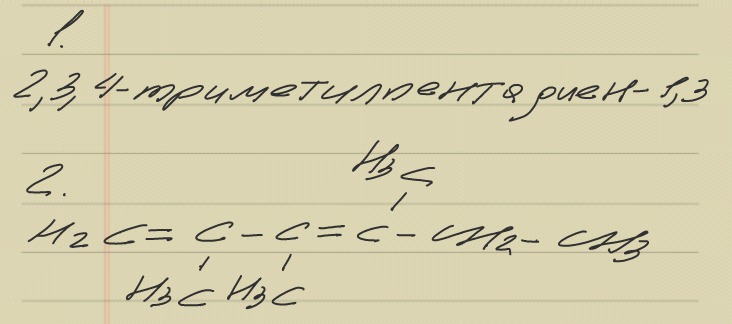 1.
2,3,4-триметилпентадиен-1,3
2.
H3C
H2C=C-C=C-CH2-CH3
H3C H3C